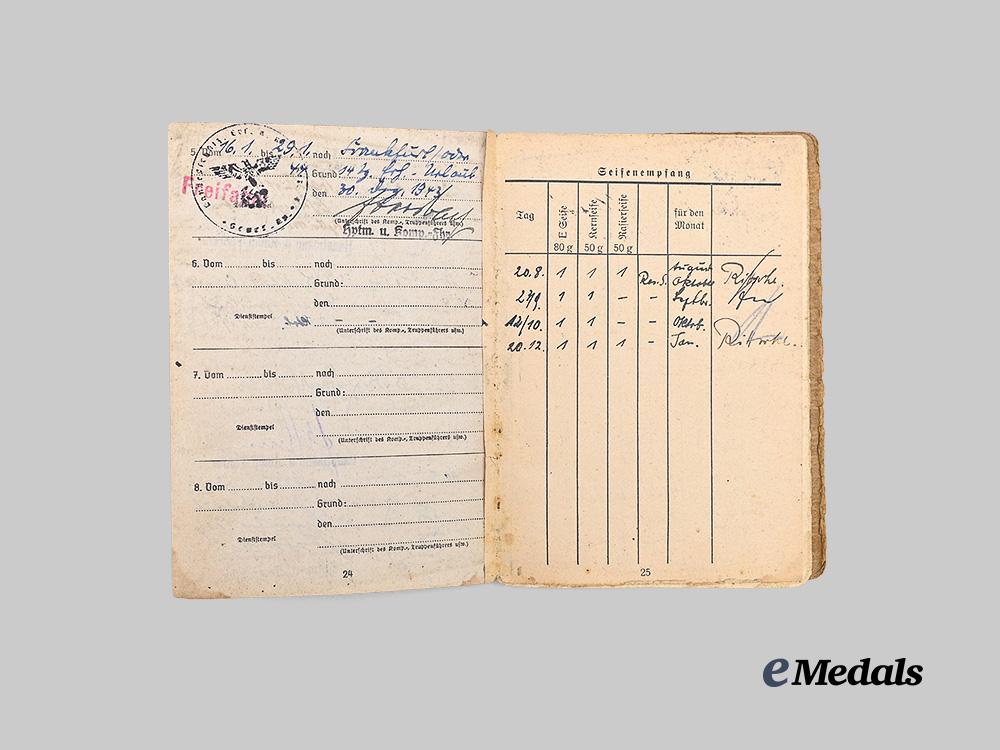 5. Vom 16.1. bis 29.1. nach Frankfurt/oder
44 Grund: 14 tg. Erh.-Urlaub
Freifahrt
den 30. Dez. 1943
(Unterschrift des Komp., Truppenführers usw.)
Hptm. u. Komp.-Fhr.
6. Vom bis nach
Grund:
den
Dienststempel
(Unterschrift des Komp., Truppenführers usw.)
7. Vom bis nach
Grund:
den
Dienststempel
(Unterschrift des Komp., Truppenführers usw.)
8. Vom bis nach
Grund:
den
Dienststempel
(Unterschrift des Komp., Truppenführers usw.)
24
Seifenempfang
Tag E Seife Kernseife Rasierseife für den Monat
80 g 50 g 50 g
20.8. 1 1 1 August
Oktober
27/9. 1 1 – – Septbr.
12/10. 1 1 – – Oktob.
20.12. 1 1 1 – Jan.
25
eMedals